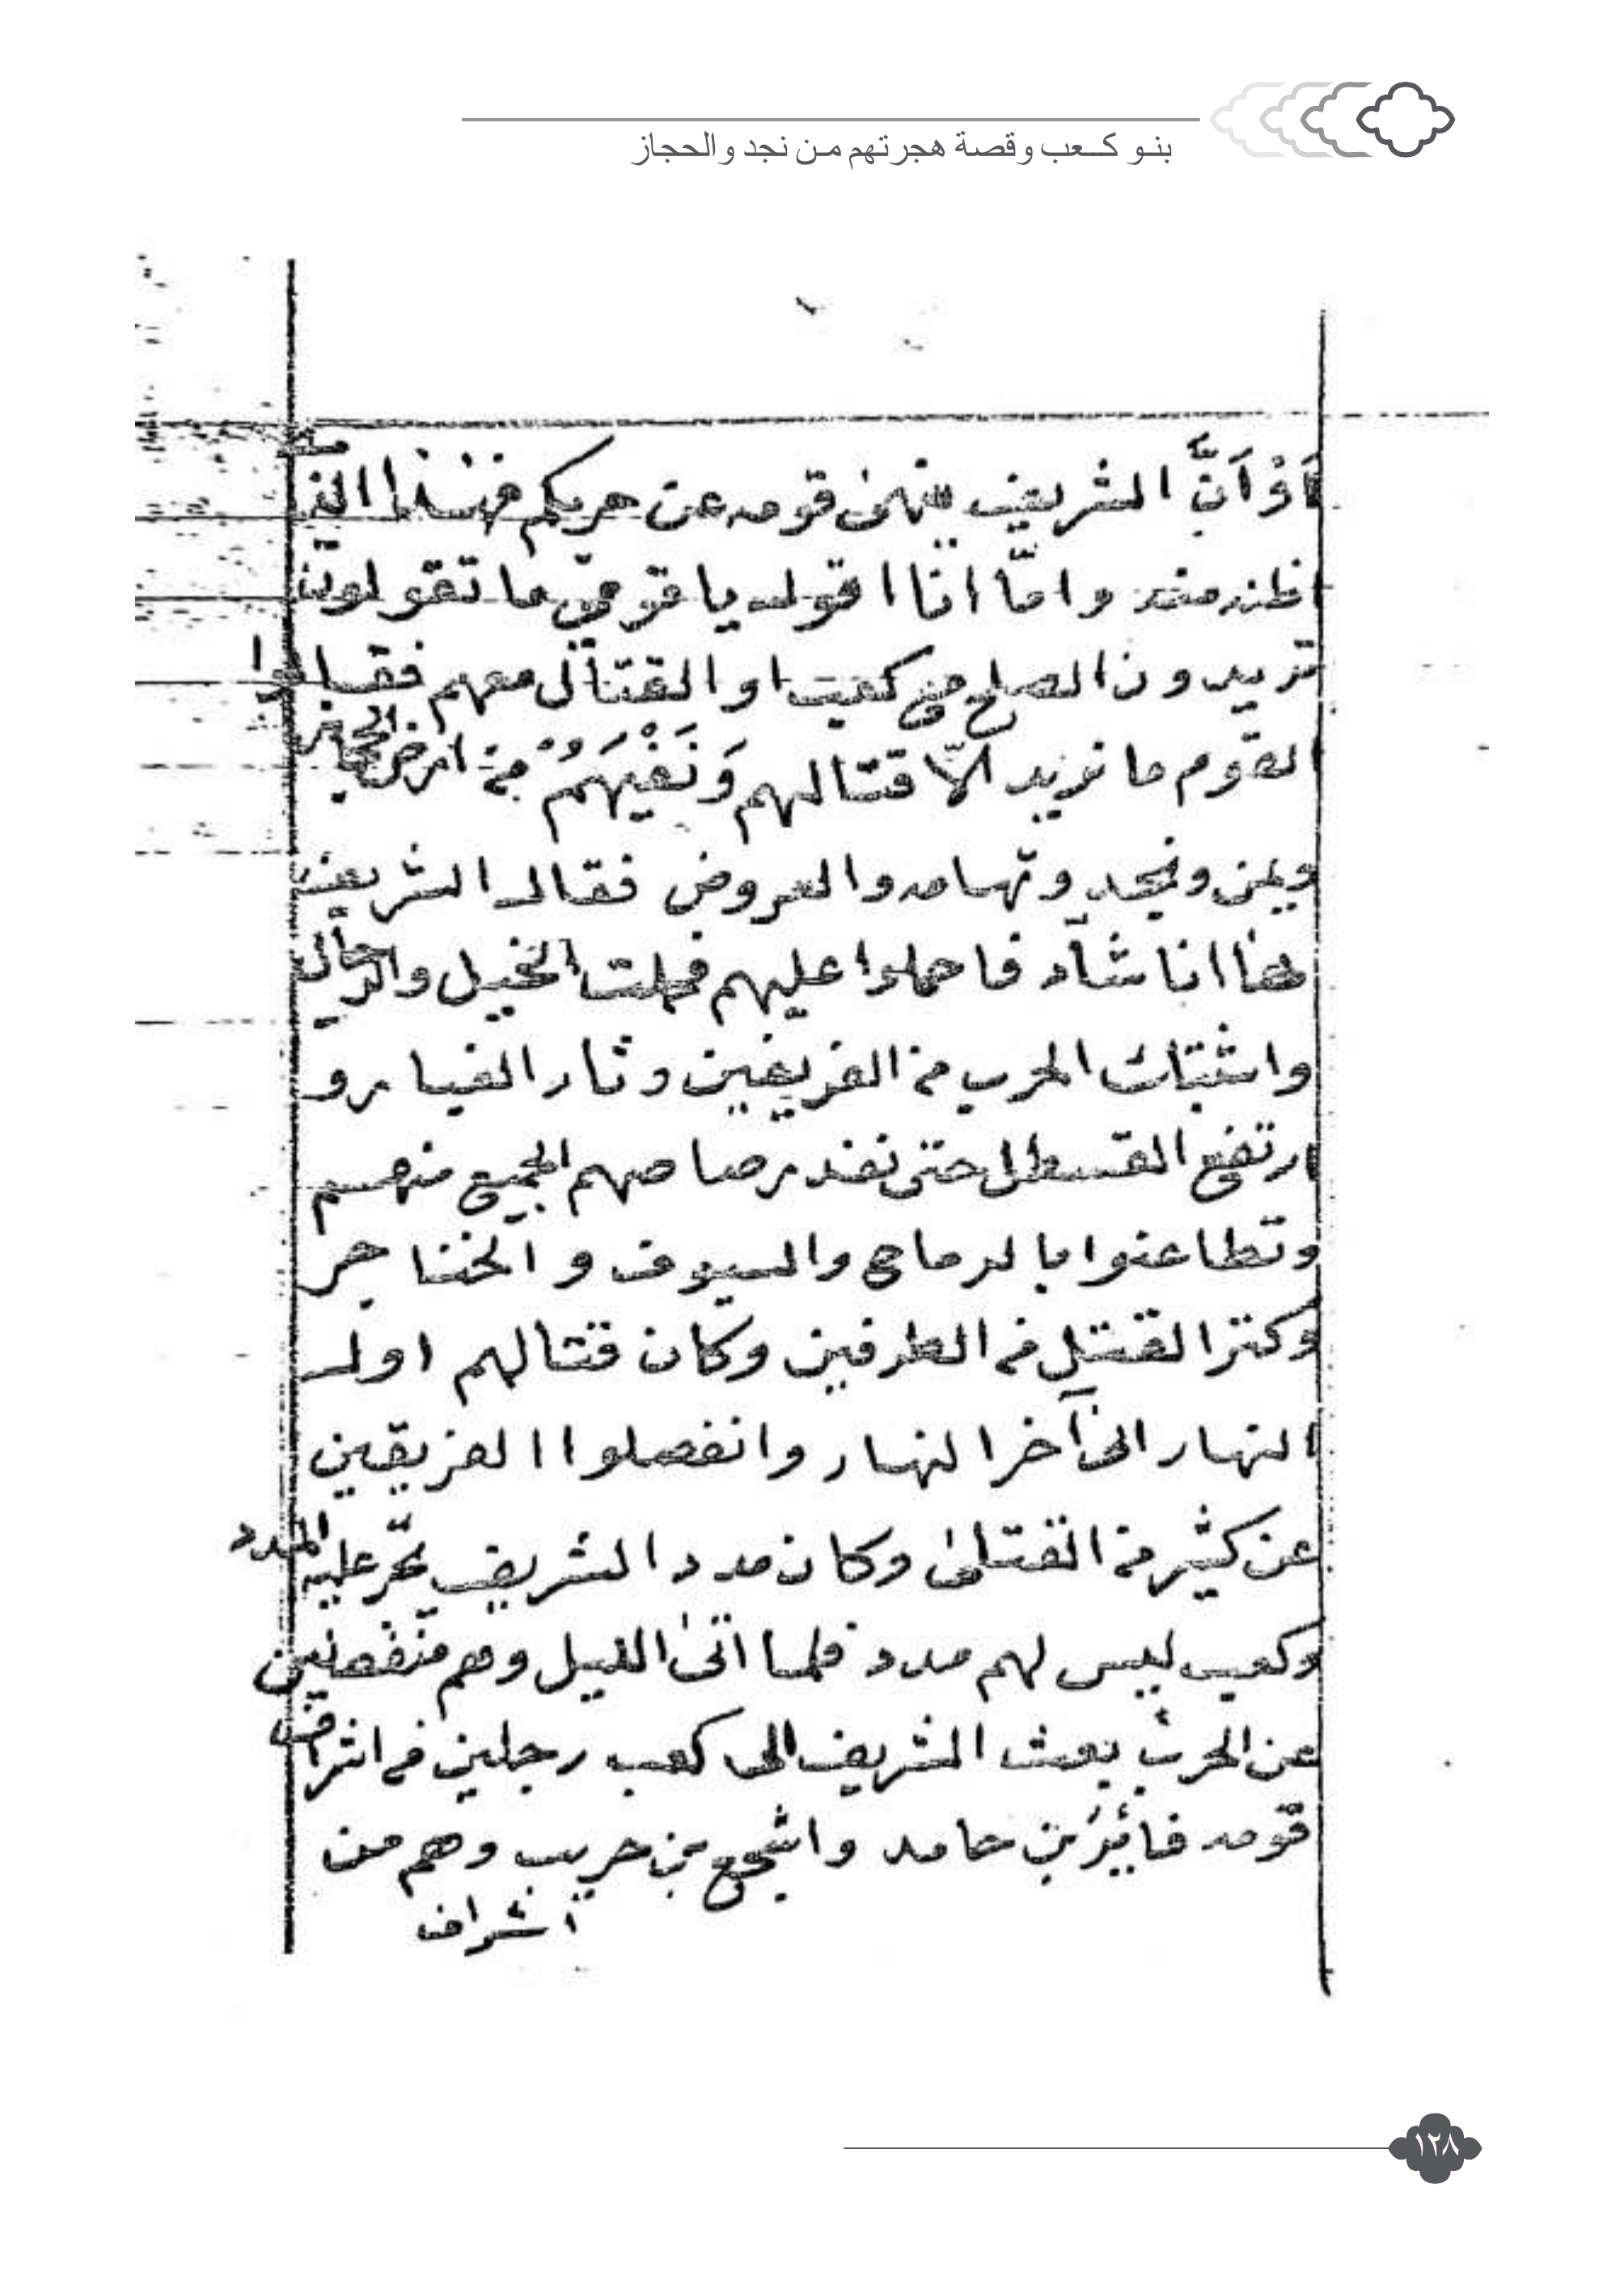 بنو كعب وقصة هجرتهم من نجد والحجاز
اَوْ اَنَّ الشريف ينهىٰ قومه عن حربكم فهٰذا الّذي
اظنه منه وامّا انا اقول يا قومي ما تقولون
تريدون الصلح مع كعب او القتال معهم فقالوا
القوم ما نريد الاّ قتالهم وَنَفْيَهَمُ من ارض الحجاز
ويمن ونجد وتهامه والعروض فقال الشريف
هذا انا شآء فاحملوا عليهم فحملت الخيل والرجال
واشتبك الحرب من الفريقين وثار الغبار و
ارتفع القسطل حتى نفد رصاصهم الجميع منهم
وتطاعنوا بالرماح والسيوف والخناجر
وكثر القتل من الطرفين وكان قتالهم اول
النهار الى آخر النهار وانفصلوا الفريقين
عن كثير من القتلىٰ وكان مدد الشريف يجرّ عليه المدد
وكعب ليس لهم مدد فلما اتىٰ الليل وهم منفصلين
عن الحرب بعث الشريف الى كعب رجلين من اشراف
قومه بن حامد واشجع بن حريب وهم من
اشراف
١٢٨